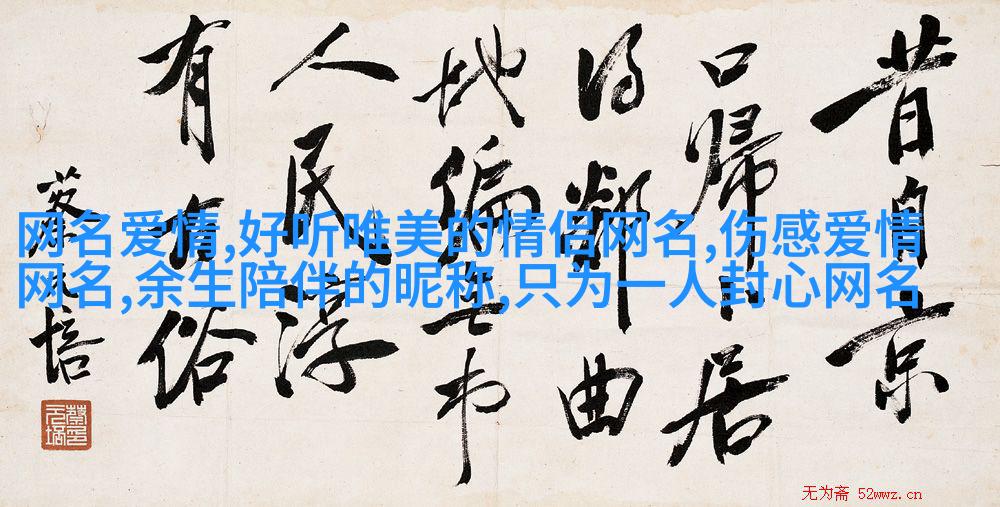 昔自京
口歸卜居
得鄰曲
地偏無市
人民淳
有古俗
蔡元培
网名爱情,好听唯美的情侣网名,伤感爱情
网名,余生陪伴的昵称,只为一人封心网名
无为斋 52wwz.cn